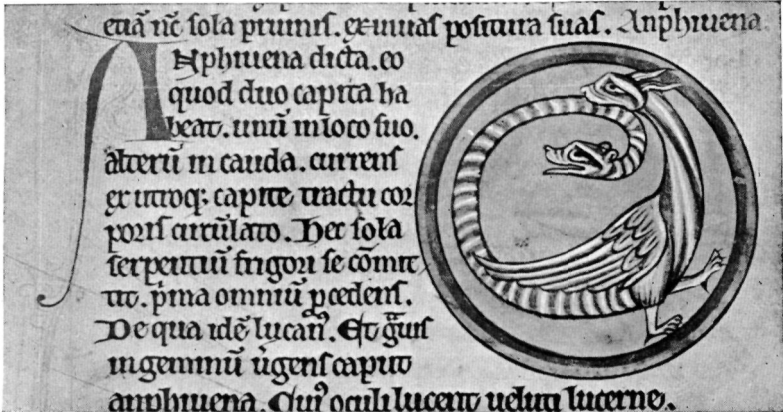 etiā nc̄ sola pruinis. exuuias positura suas. Anphiuena.
ANphiuena dicta. eo
quod duo capita ha
beat. unū in loco suo.
alterū in cauda. currens
ex utroq; capite tractu cor
poris circulato. Hec sola
serpentiū frigori se cōmit
tit. p̾ma omniū p̱cedens.
De qua idē lucanꝰ. Et gᵃuis
in geminū u̾gens caput
anphiuena. Cuiꝰ oculi lucent ueluti lucerne.